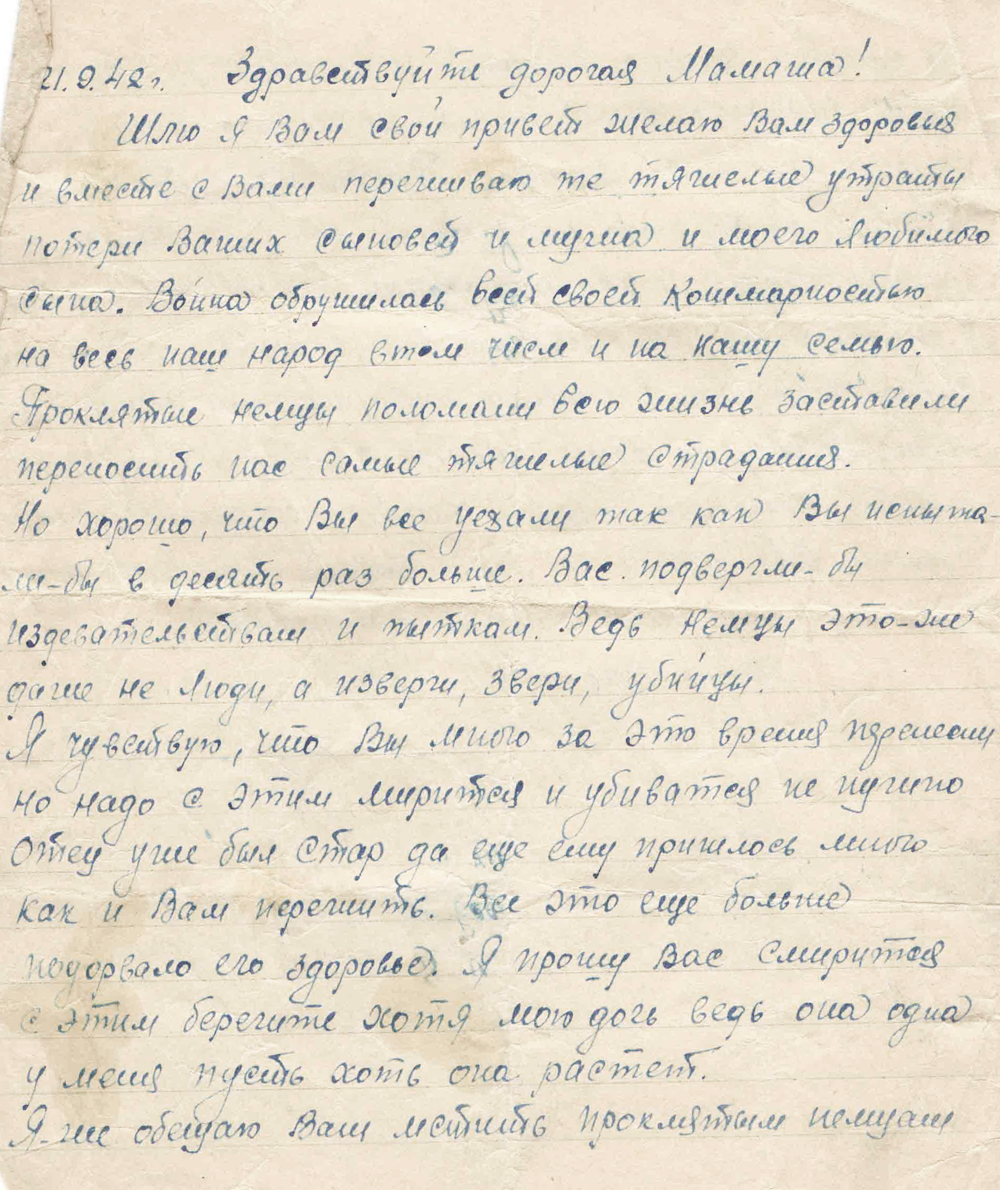 21.9.42г. Здравствуйте дорогая Мамаша!
Шлю я Вам свой привет желаю Вам здоровья
и вместе с Вами переживаю те тяжелые утраты
потери Ваших сыновей и мужа и моего любимого
сына. Война обрушилась всей своей кошмарностью
на весь наш народ втом числе и на нашу семью.
Проклятые немцы поломали всю жизнь заставили
переносить нас самые тяжелые страдания.
Но хорошо, что Вы все уехали так как Вы испыта-
ли-бы в десять раз больше. Вас подвергли-бы
издевательствам и пыткам. Ведь немцы это-же
даже не люди, а изверги, звери, убийцы.
Я чувствую, что Вы много за это время перенесли
но надо с этим мирится и убиватся не нужно
Отец уже был стар да еще ему пришлось много
как и Вам пережить. Все это еще больше
подорвало его здоровье. Я прошу Вас смирится
с этим берегите хотя мою дочь ведь она одна
у меня пусть хоть она растет.
Я-же обещаю Вам мстить проклятым немцам